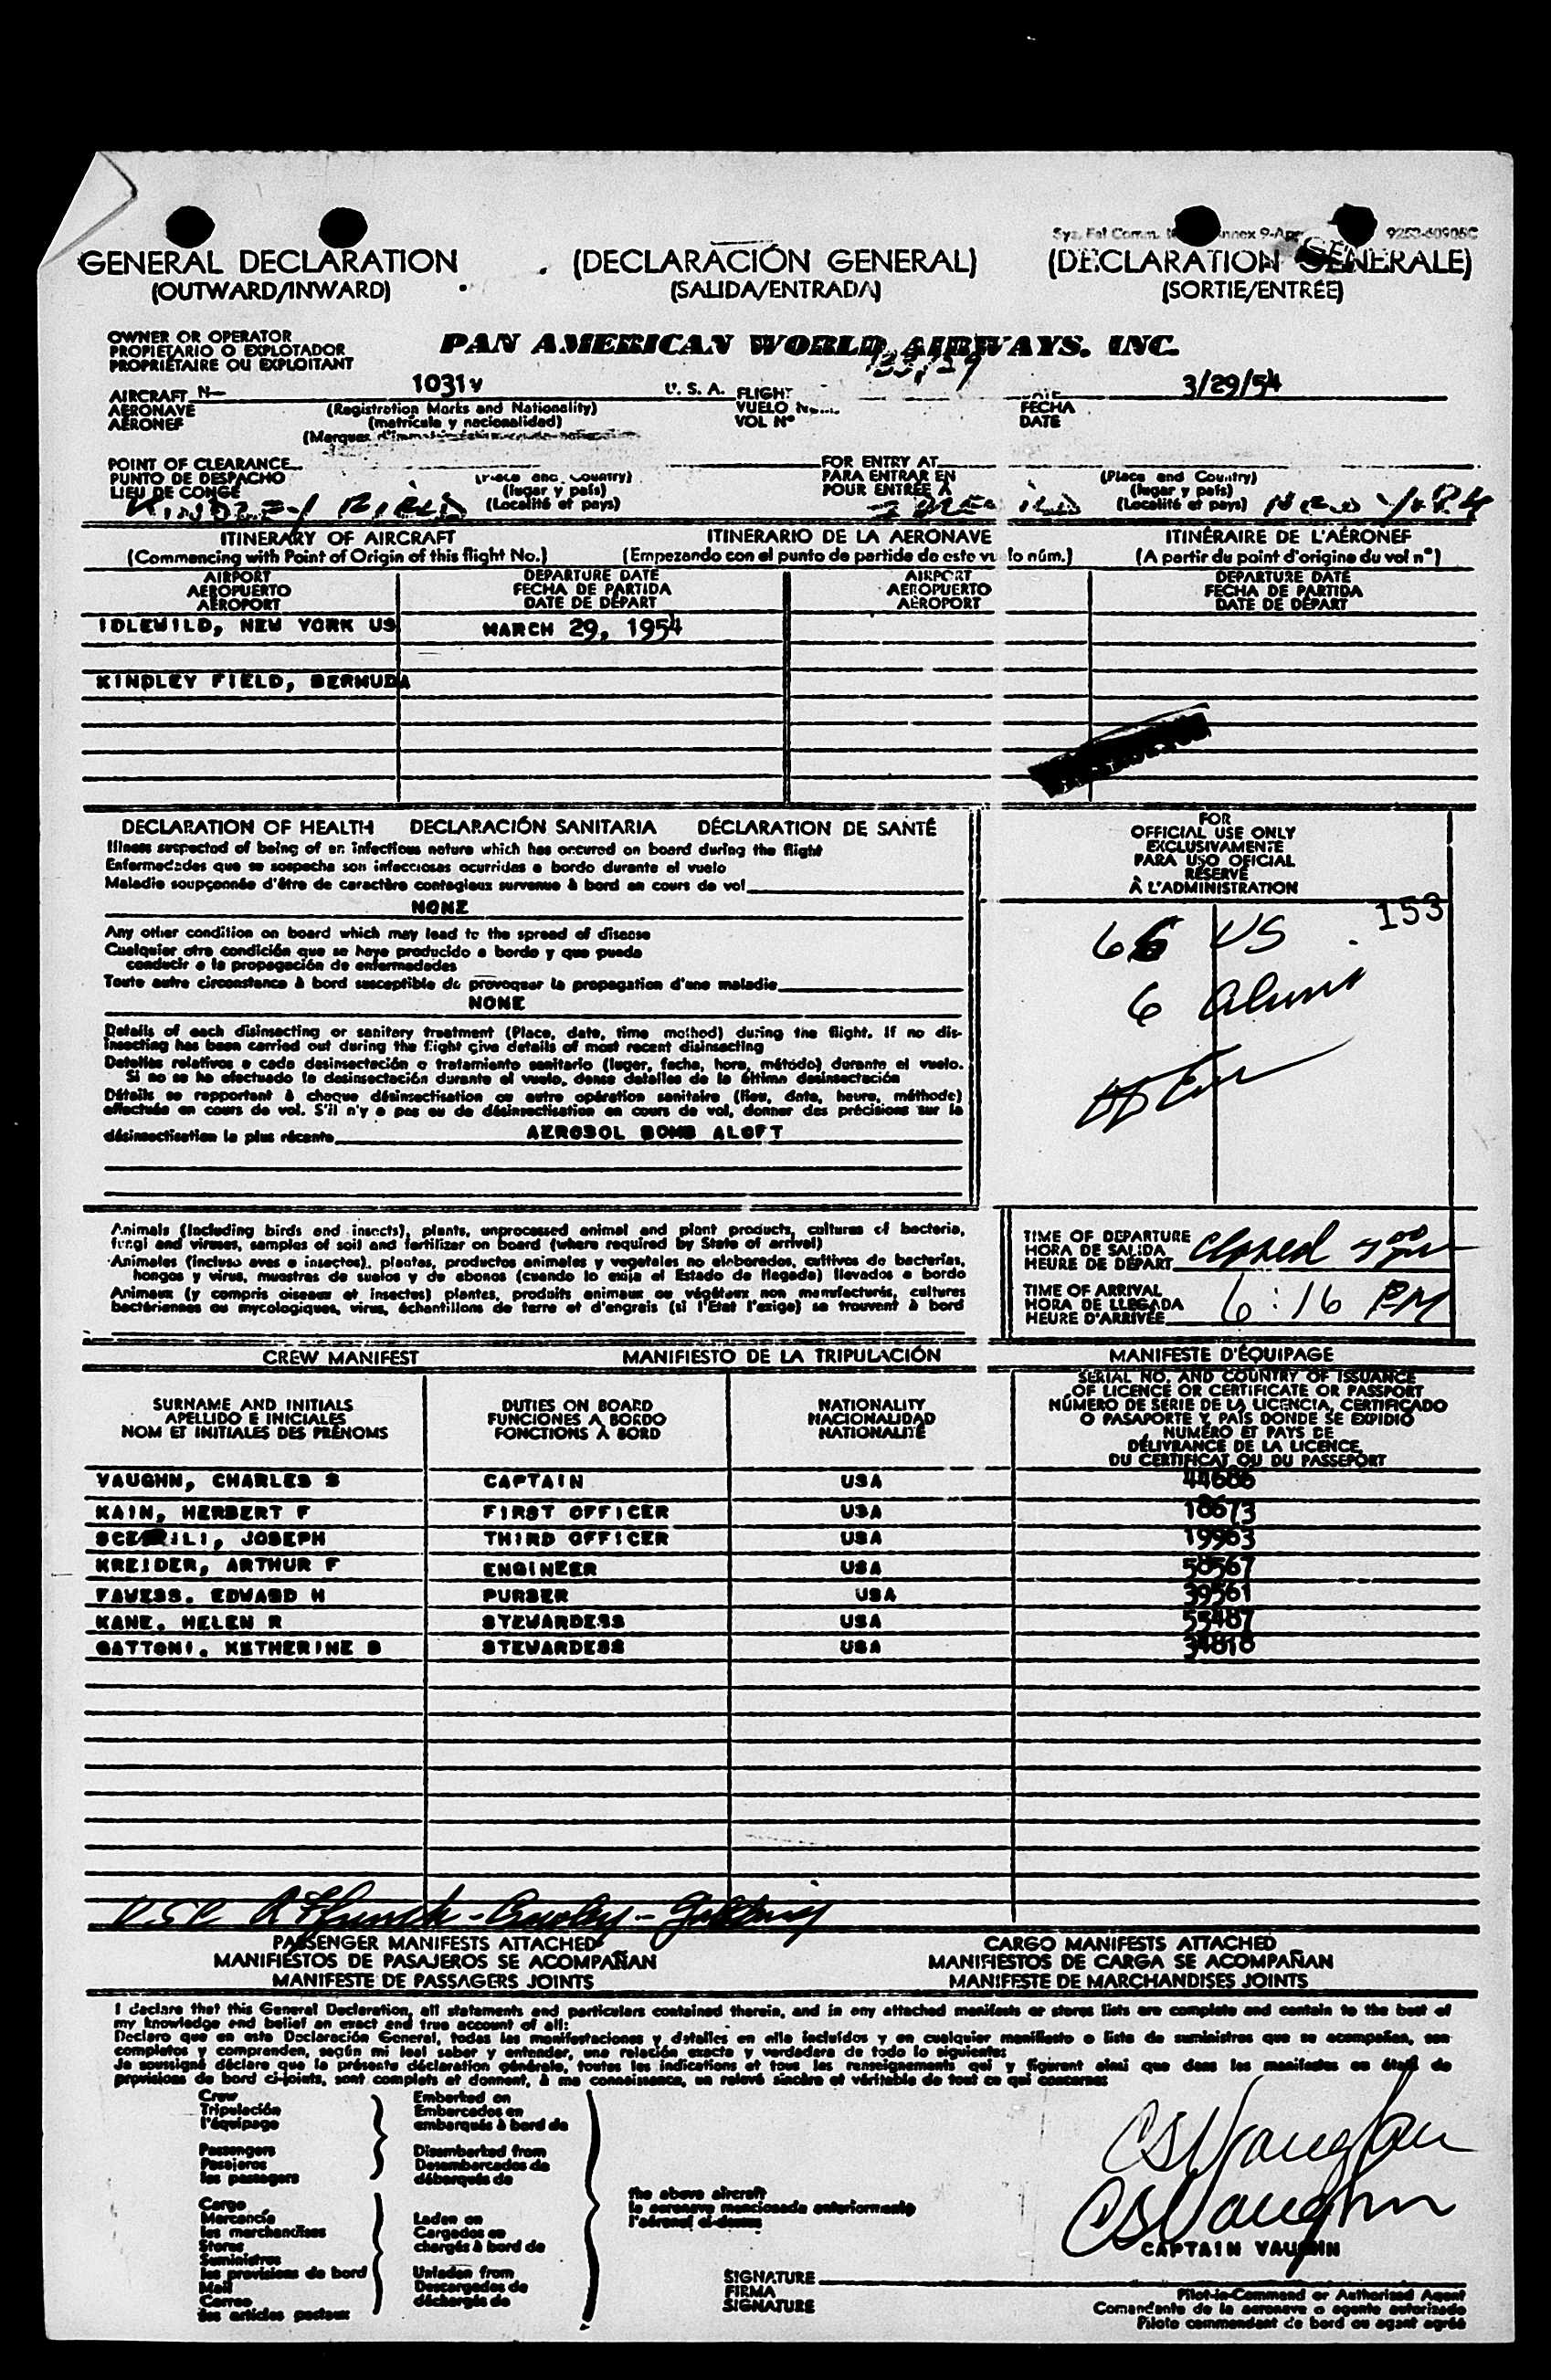 Sys. Fal Comm. Annex 9-Apr 9253-60905C
GENERAL DECLARATION (DECLARACIÓN GENERAL) (DECLARATION GENERALE)
(OUTWARD/INWARD) (SALIDA/ENTRADA) (SORTIE/ENTRÉE)
OWNER OR OPERATOR
PROPIETARIO O EXPLOTADOR PAN AMERICAN WORLD AIRWAYS, INC.
PROPRIÉTAIRE OU EXPLOITANT
AIRCRAFT N- 1031V U. S. A. FLIGHT DATE 3/29/54
AERONAVE (Registration Marks and Nationality) VUELO FECHA
AÉRONEF (matrícula y nacionalidad) VOL Nº DATE
(Marques d'immatriculation
POINT OF CLEARANCE FOR ENTRY AT
PUNTO DE DESPACHO (Place and Country) PARA ENTRAR EN (Place and Country)
LIEU DE CONGÉ (lugar y país) POUR ENTRÉE À (lugar y país)
KINDLEY FIELD (Localité et pays) (Localité et pays) NEW YORK
ITINERARY OF AIRCRAFT ITINERARIO DE LA AERONAVE ITINÉRAIRE DE L'AÉRONEF
(Commencing with Point of Origin of this flight No.) (Empezando con el punto de partida de este vuelo núm.) (A partir du point d'origine du vol nº)
AIRPORT DEPARTURE DATE AIRPORT DEPARTURE DATE
AEROPUERTO FECHA DE PARTIDA AEROPUERTO FECHA DE PARTIDA
AÉROPORT DATE DE DÉPART AÉROPORT DATE DE DÉPART
IDLEWILD, NEW YORK US MARCH 29, 1954
KINDLEY FIELD, BERMUDA
DECLARATION OF HEALTH DECLARACIÓN SANITARIA DÉCLARATION DE SANTÉ
Illness suspected of being of an infectious nature which has occured on board during the flight
Enfermedades que se sospecha son infecciosas ocurridas a bordo durante el vuelo
Maladie soupçonnée d'être de caractère contagieux survenue à bord en cours de vol
NONE
Any other condition on board which may lead to the spread of disease
Cualquier otra condición que se haya producido a bordo y que pueda
conducir a la propagación de enfermedades
Toute autre circonstance à bord susceptible de provoquer la propagation d'une maladie
NONE
Details of each disinsecting or sanitary treatment (Place, date, time method) during the flight. If no dis-
insecting has been carried out during the flight give details of most recent disinsecting
Detalles relativos a cada desinsectación o tratamiento sanitario (lugar, fecha, hora, método) durante el vuelo.
Si no se ha efectuado la desinsectación durante el vuelo, dense detalles de la última desinsectación
Détails se rapportant à chaque désinsectisation ou autre opération sanitaire (lieu, date, heure, méthode)
effectuée en cours de vol. S'il n'y a pas eu de désinsectisation en cours de vol, donner des précisions sur la
désinsectisation la plus récente AEROSOL BOMB ALOFT
FOR
OFFICIAL USE ONLY
EXCLUSIVAMENTE
PARA USO OFICIAL
RÉSERVÉ
À L'ADMINISTRATION
153
66 US
6 Aliens
Animals (including birds and insects), plants, unprocessed animal and plant products, cultures of bacteria,
fungi and viruses, samples of soil and fertilizer on board (where required by State of arrival)
Animales (incluso aves e insectos), plantas, productos animales y vegetales no elaborados, cultivos de bacterias,
hongos y virus, muestras de suelos y de abonos (cuando lo exija el Estado de llegada) llevados a bordo
Animaux (y compris oiseaux et insectes) plantes, produits animaux ou végétaux non manufacturés, cultures
bactériennes ou mycologiques, virus, échantillons de terre et d'engrais (si l'État l'exige) se trouvent à bord
TIME OF DEPARTURE
HORA DE SALIDA closed 7 00 pm
HEURE DE DÉPART
TIME OF ARRIVAL
HORA DE LLEGADA 6:16 PM
HEURE D'ARRIVÉE
CREW MANIFEST MANIFIESTO DE LA TRIPULACIÓN MANIFESTE D'ÉQUIPAGE
SURNAME AND INITIALS DUTIES ON BOARD NATIONALITY
APELLIDO E INICIALES FUNCIONES A BORDO NACIONALIDAD
NOM ET INITIALES DES PRÉNOMS FONCTIONS À BORD NATIONALITÉ
SERIAL NO. AND COUNTRY OF ISSUANCE
OF LICENCE OR CERTIFICATE OR PASSPORT
NÚMERO DE SERIE DE LA LICENCIA, CERTIFICADO
O PASAPORTE Y PAÍS DONDE SE EXPIDIÓ
NUMÉRO ET PAYS DE
DÉLIVRANCE DE LA LICENCE,
DU CERTIFICAT OU DU PASSEPORT
VAUGHN, CHARLES S CAPTAIN USA 44686
KAIN, HERBERT F FIRST OFFICER USA 18673
JOSEPH THIRD OFFICER USA 19963
KREIDER, ARTHUR F ENGINEER USA 58567
EDWARD H PURSER USA 39561
KANE, HELEN R STEWARDESS USA 55487
GATTONI, KETHERINE B STEWARDESS USA 34818
PASSENGER MANIFESTS ATTACHED CARGO MANIFESTS ATTACHED
MANIFIESTOS DE PASAJEROS SE ACOMPAÑAN MANIFIESTOS DE CARGA SE ACOMPAÑAN
MANIFESTE DE PASSAGERS JOINTS MANIFESTE DE MARCHANDISES JOINTS
I declare that this General Declaration, all statements and particulars contained therein, and in any attached manifests or stores lists are complete and contain to the best of
my knowledge and belief an exact and true account of all:
Declaro que en esta Declaración General, todas las manifestaciones y detalles en ella incluídos y en cualquier manifiesto o lista de suministros que se acompañan, son
completos y comprenden, según mi leal saber y entender, una relación exacta y verdadera de todo lo siguiente:
Je soussigné déclare que la présente déclaration générale, toutes les indications et tous les renseignements qui y figurent ainsi que dans les manifestes ou états de
provisions de bord ci-joints, sont complets et donnent, à ma connaissance, un relevé sincère et véritable de tout ce qui concerne:
Crew Embarked on
Tripulación Embarcados en
l'équipage embarqués à bord de
Passengers Disembarked from
Pasajeros Desembarcados de
les passagers débarqués de
the above aircraft
la aeronave mencionada anteriormente
l'aéronef ci-dessus
Cargo
Mercancía Laden on
les marchandises Cargados en
Stores chargés à bord de
Suministros
les provisions de bord Unladen from
Mail Descargados de
Correo déchargés de
les articles postaux
CSVaughn
CSVaughn
CAPTAIN VAUGHN
SIGNATURE
FIRMA
SIGNATURE
Pilot-in-Command or Authorized Agent
Comandante de la aeronave o agente autorizado
Pilote commandant de bord ou agent agréé